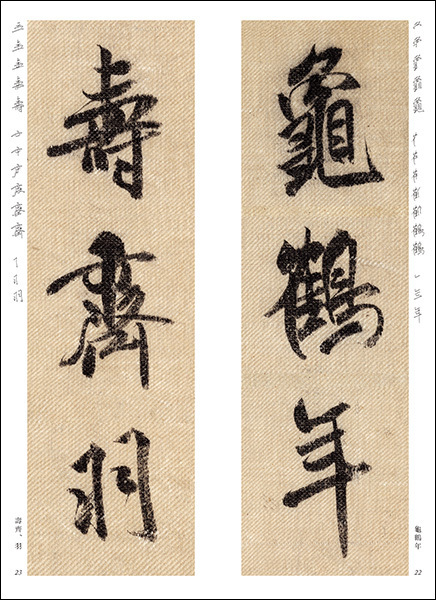 龜鶴年
龜鶴年
22
壽齊羽
壽齊、羽
23